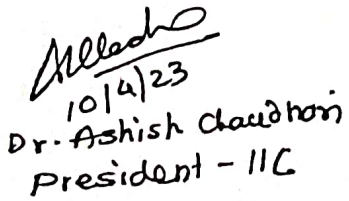 10/4/23
Dr. Ashish Chaudhari
President - IIC